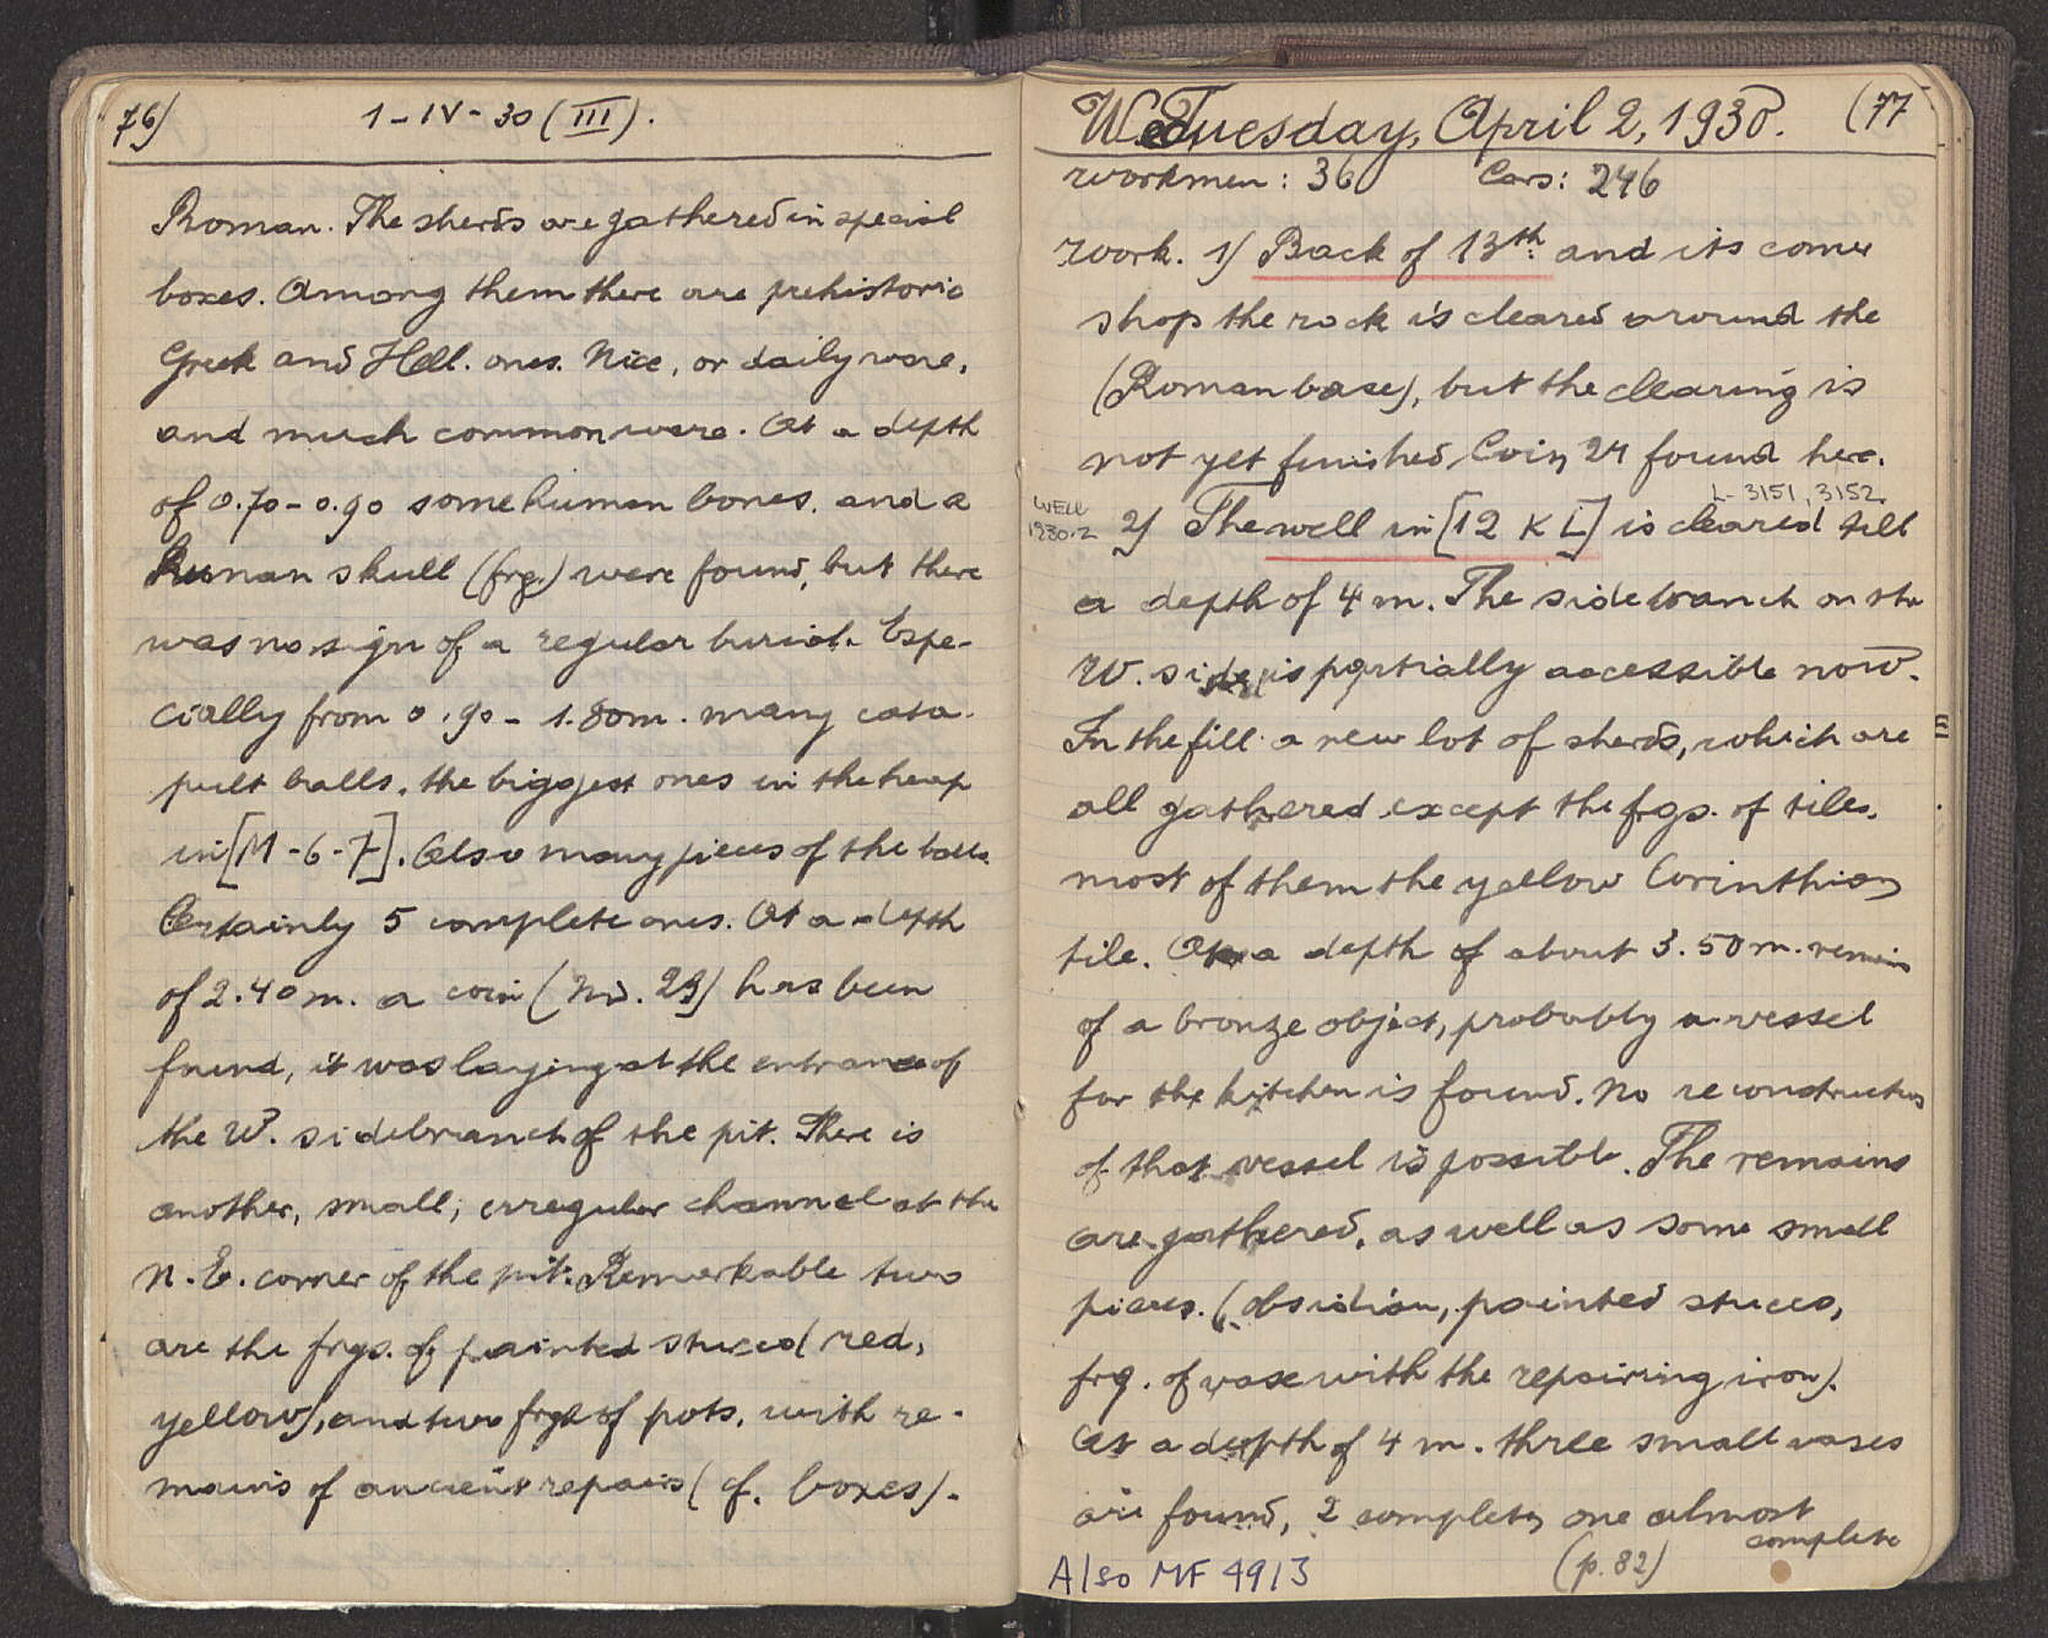 76)
1-IV-30 (III).
Roman. The sherds are gathered in special
boxes. Among them there are prehistoric
Greek and Hell. ones. Nice, or daily ware,
and much common ware. At a depth
of 0.70-0.90 some human bones, and a
human skull (frg.) were found, but there
was no sign of a regular burial. Espe-
cially from 0.90 - 1.80m. many cata-
pult balls, the biggest ones in the heap
in [M-6-7]. Also many pieces of the balls.
Certainly 5 complete ones. At a depth
of 2.40 m. a coin (No. 23) has been
found, it was laying at the entrance of
the W. sidebranch of the pit. There is
another, small, irregular channel at the
N.E. corner of the pit. Remarkable two
are the frgs. of painted stucco (red,
yellow), and two frgs of pots, with re-
mains of ancient repairs (cf. boxes).
Wednesday, April 2, 1930. (77
Workmen: 36 Cars: 246
Work. 1) Back of 13th and its corner
shop the rock is cleared around the
(Roman base), but the clearing is
not yet finished, Coin 24 found here.
L-3151, 3152
WELL
1930-2
2) The well in [12 K L] is cleared till
a depth of 4 m. The sidebranch on the
W. side is partially accessible now.
In the fill a new lot of sherds, which are
all gathered except the frgs. of tiles,
most of them the yellow Corinthian
tile. At a depth of about 3.50 m. remains
of a bronze object, probably a vessel
for the kitchen is found. No reconstruction
of that vessel is possible. The remains
are gathered, as well as some small
pieces. (obsidian, painted stucco,
frg. of vase with the repairing iron).
At a depth of 4 m. three small vases
are found, 2 complete, one almost
complete
(p. 82)
Also MF 4913